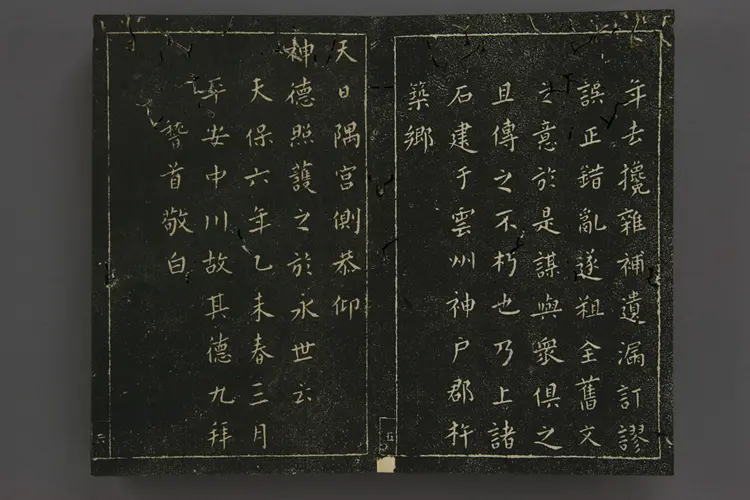 年去攙雜補遺漏訂謬
誤正錯亂遂粗全舊文
之意於是謀與衆俱之
且傳之不朽也乃上諸
石建于雲州神戸郡杵
築鄉
天日隅宮側恭仰
神德照護之於永世云
天保六年乙未春三月
平安中川故其德九拜
首敬白
五